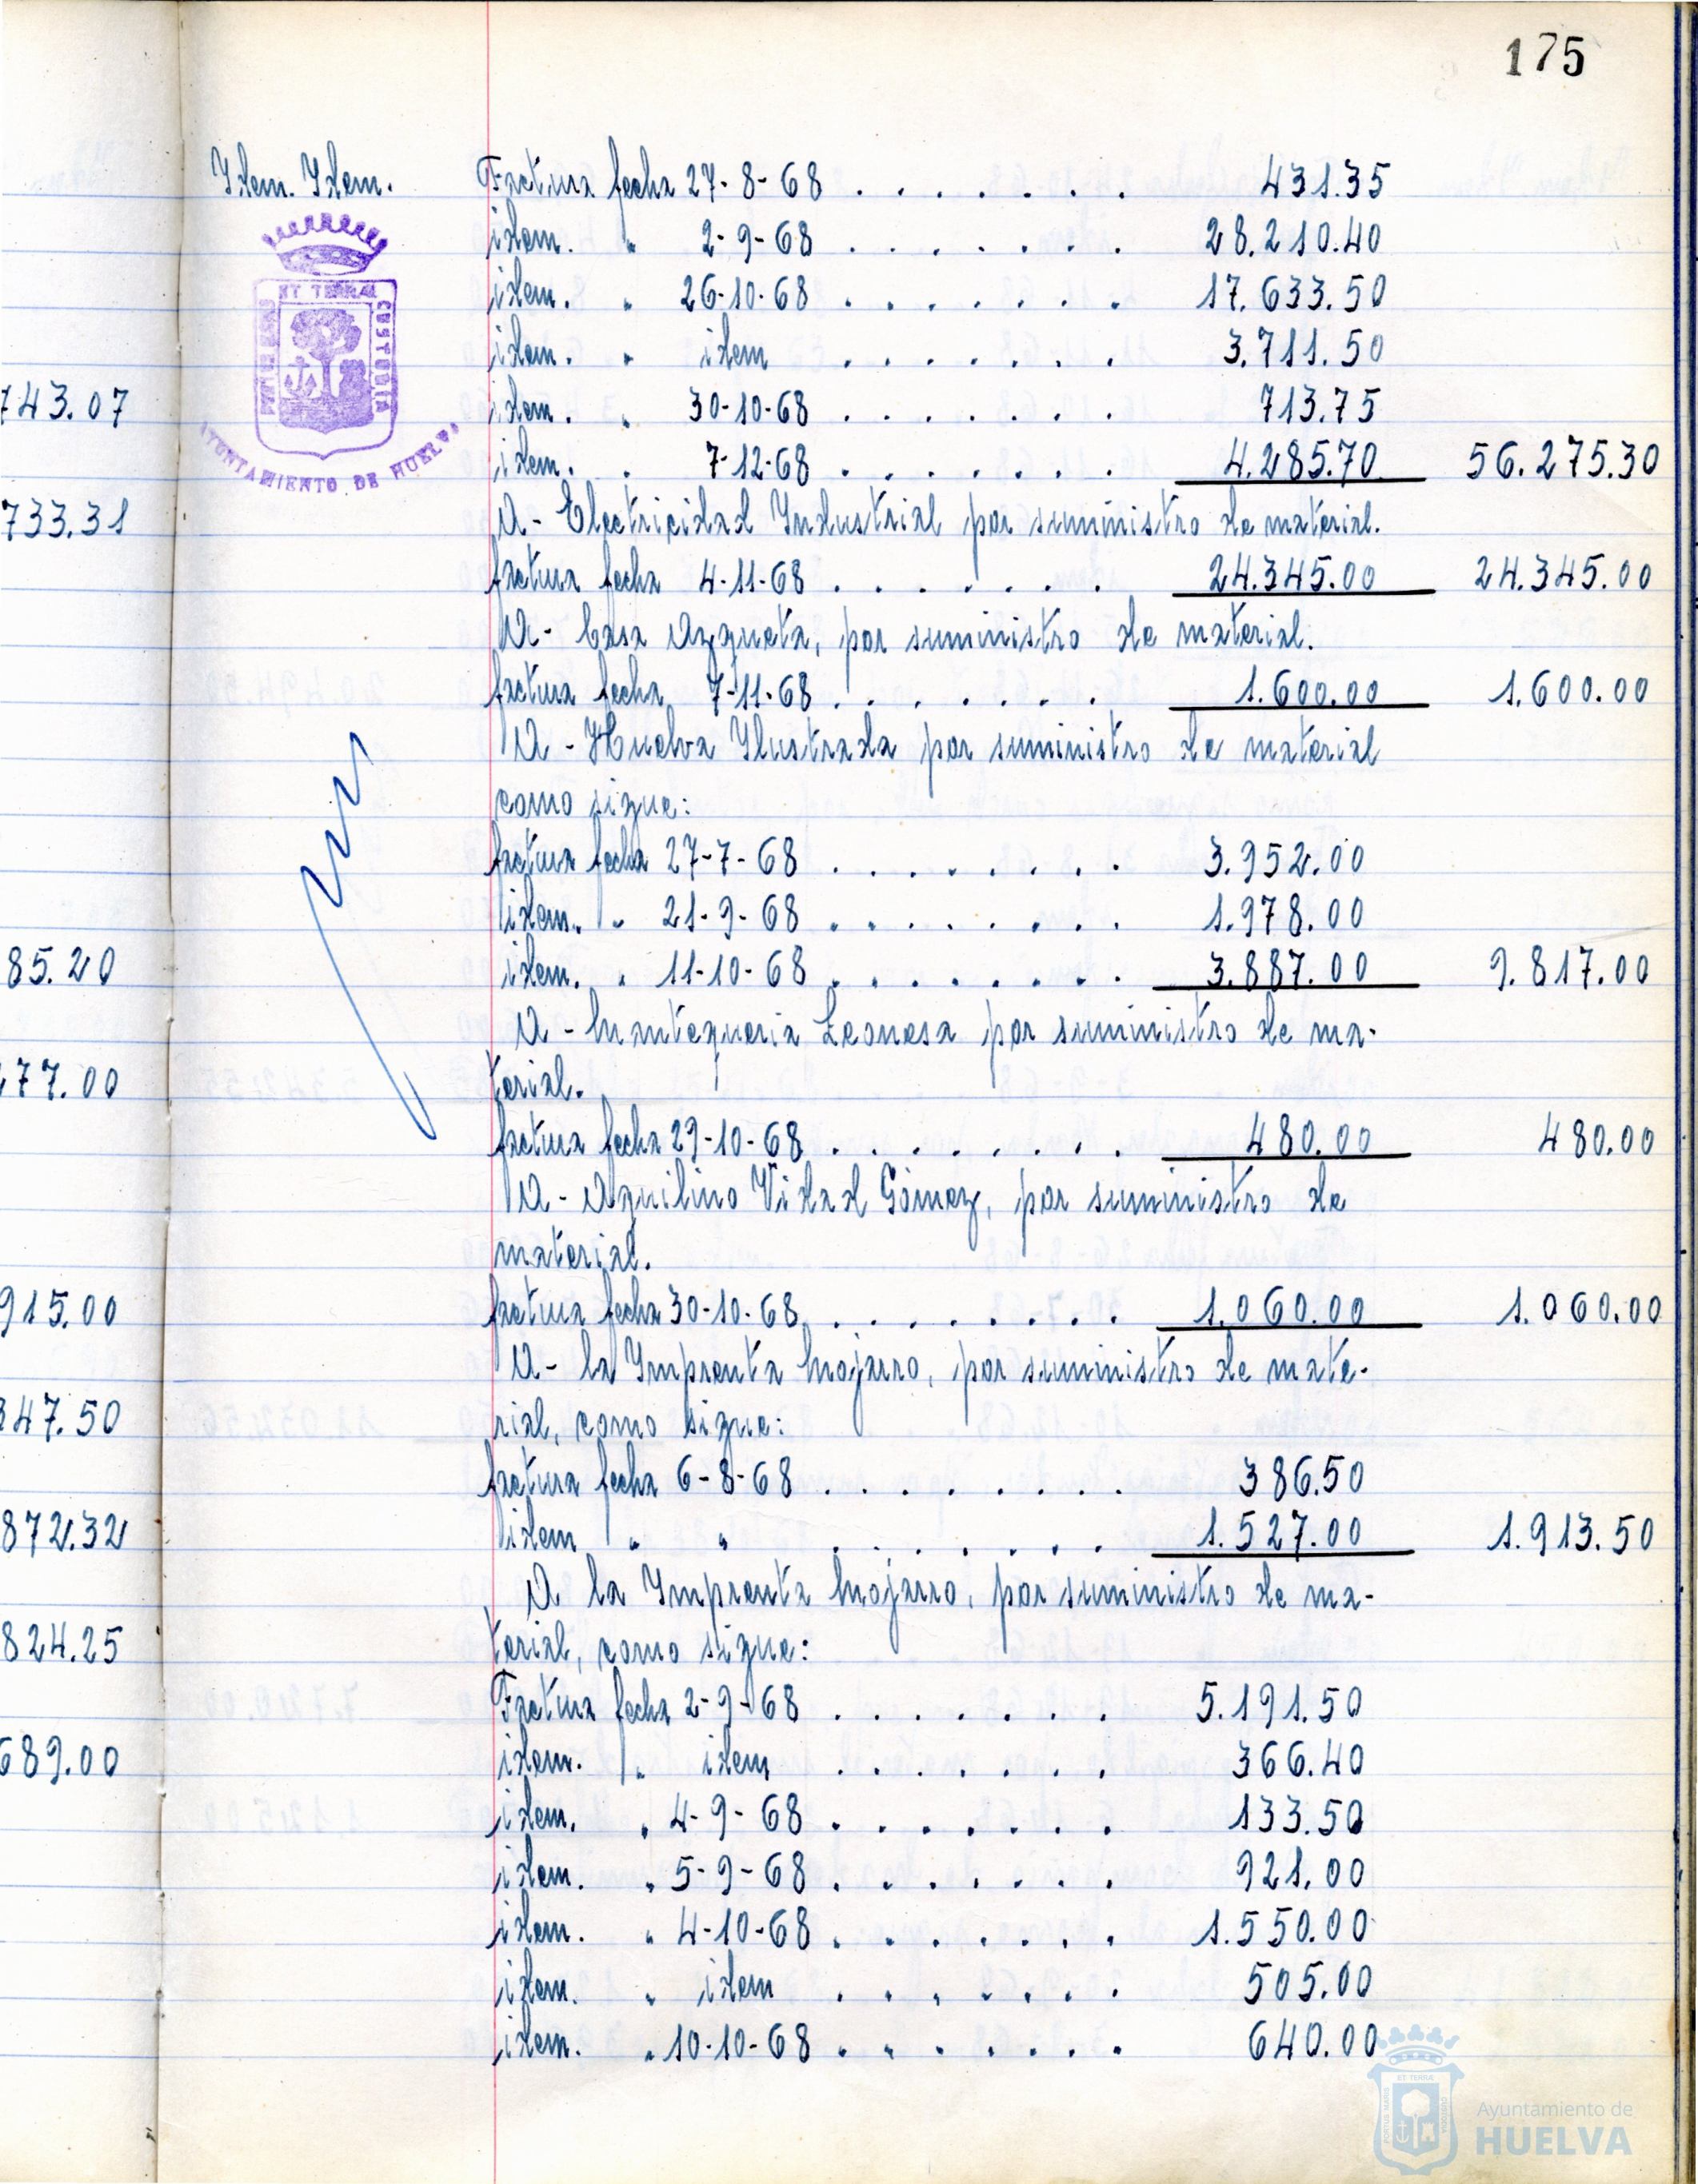 175
Ydem. Ydem. Factura fecha 27-8-68 . . . . . . . 431.35
idem. " 2-9-68 . . . . . . . 28.210.40
idem. " 26-10-68 . . . . . . . 17.633.50
idem. " idem . . . . . . . 3.711.50
743.07 idem. " 30-10-68 . . . . . . . 713.75
idem. " 7-12-68 . . . . . . . 4.285.70 56.275.30
PORTUS MARIS ET TERRAE CUSTODIA
AYUNTAMIENTO DE HUELVA
733.31 A- Electricidad Yndustrial por suministro de material.
factura fecha 4-11-68 . . . . . . . 24.345.00 24.345.00
A- Casa Azqueta, por suministro de material.
factura fecha 7-11-68 . . . . . . . 1.600.00 1.600.00
A - Huelva Ylustrada por suministro de material
como sigue:
factura fecha 27-7-68 . . . . . . . . 3.952.00
idem. " 21-9-68 . . . . . . . . 1.978.00
85.20 idem. " 11-10-68 . . . . . . . . 3.887.00 9.817.00
A - Mantequeria Leonesa por suministro de ma-
77.00 terial.
factura fecha 29-10-68 . . . . . . . . 480.00 480.00
A - Aquilino Vidad Gómez, por suministro de
material.
915.00 factura fecha 30-10-68 . . . . . . . . 1.060.00 1.060.00
A- la Ymprenta Mojarro, por suministro de mate-
47.50 rial, como sigue:
factura fecha 6-8-68 . . . . . . . . 386.50
872.32 idem " " . . . . . . . 1.527.00 1.913.50
A la Ymprenta Mojarro, por suministro de ma-
824.25 terial, como sigue:
Factura fecha 2-9-68 . . . . . . . 5.191.50
689.00 idem. " idem . . . . . . . 366.40
idem. " 4-9-68 . . . . . . . 133.50
idem. " 5-9-68 . . . . . . . 921.00
idem. " 4-10-68 . . . . . . . 1.550.00
idem. " idem . . . . . . . 505.00
idem. " 10-10-68 . . . . . . . 640.00
Ayuntamiento de
HUELVA